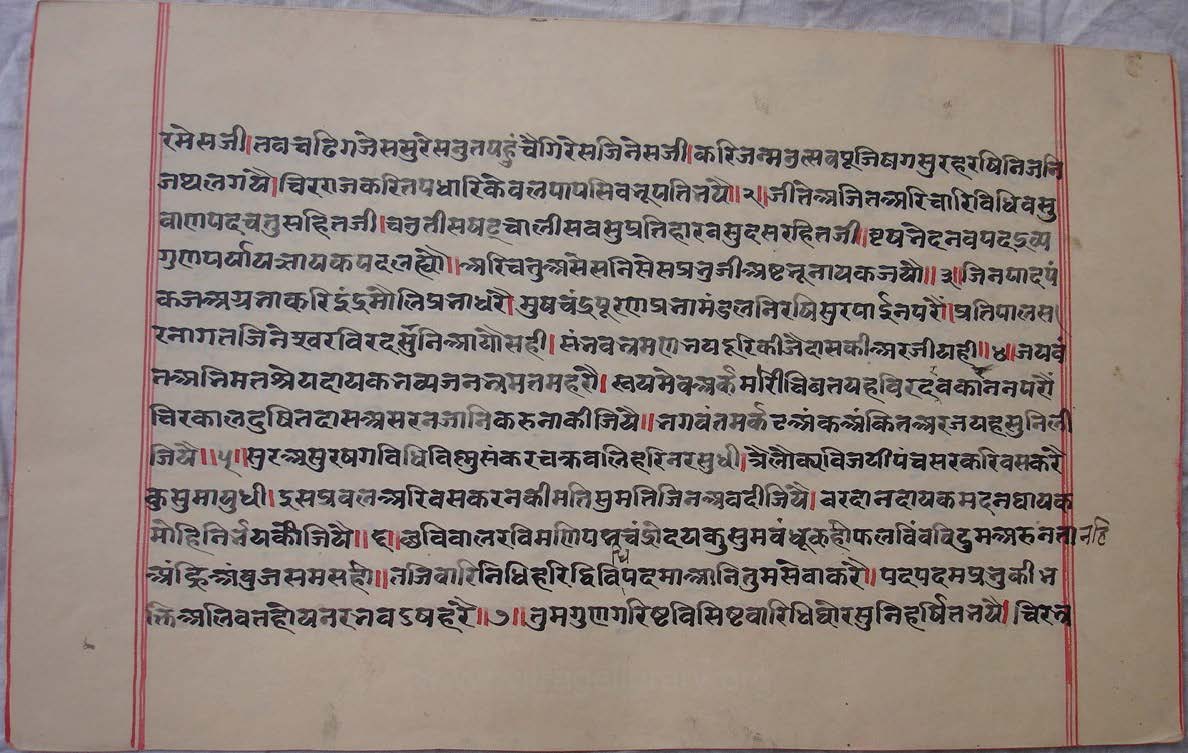 रमेसजी।तवचढिगजेससुरेसनुतपहुंचैगिरेसजिनेसजी।करिजन्मनुत्सवपूजिषगसुरहरषिनिजनि
जथलगयै।चिरराजकरितपधारिकेवलपापसिवनूपतिनयौ॥२॥जीतेअजितअरिचारिविधिवसु
वाणपदचतुसहितजी।चवतीसषट्चालीसवसुप्रतिहारवसुदसरहितजी।षटषनैदनवपदद्रव्य
गुणपर्यायज्ञायकपदलह्यौ॥अरिचतुअसेसनिसेसप्रभुजीअष्टभूनायकजयौ॥३॥जिनपादपं
कजअग्रनाकरिइंद्रमौलिप्रभाधरौ।मुषचंद्रपूरणप्रभामंडलनिरषिसुरपाईनपरौं।प्रतिपालस
रनागतजिनेस्वरविरदसुनिआयौसही।संभवभ्रमणभयदूरिकीजैदासकीअरजीयही॥४॥जयवं
तअभिमतश्रेयदायकभव्यजनभ्रमतमहरौ।स्वयमेवअर्क
चिरकालदुषितदासअसरनजानिकरुनाकीजियै॥भगवंतमर्कटअंकअंकितअरजयहसुनिली
जियै॥५॥सुरअसुरषगविधिविष्णुसंकरचक्रवलिहरिनरसुधी।त्रैलोक्यविजयीपंचसरकरिवसकरे
कुसुमायुधी।इसप्रवलअरिवसकरनकीमतिसुमतिजिनअवदीजियै।वरदानदायकमदनघायक
मोहिनिर्भयकीजियै॥६॥छविवालरविमणिपद्मचंद्रोदयकुसुमवंधूकही।फलविंवविद्रुमअरुनता नहि
अंघ्रिअंबुजसमसही॥तजिवारिनिधिहरिद्विविधपदमाआनितुमसेवाकरै॥पदपदमप्रभुकीभ
क्तिअलिवतहोयनरभवऽषहरै॥७॥तुमगुणगरिष्टविसिष्टवारिधिघोरसुनिहर्षितभयै।चिरभ्र